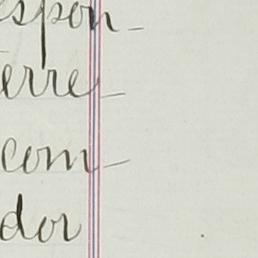 espon-
erre-
com-
dor